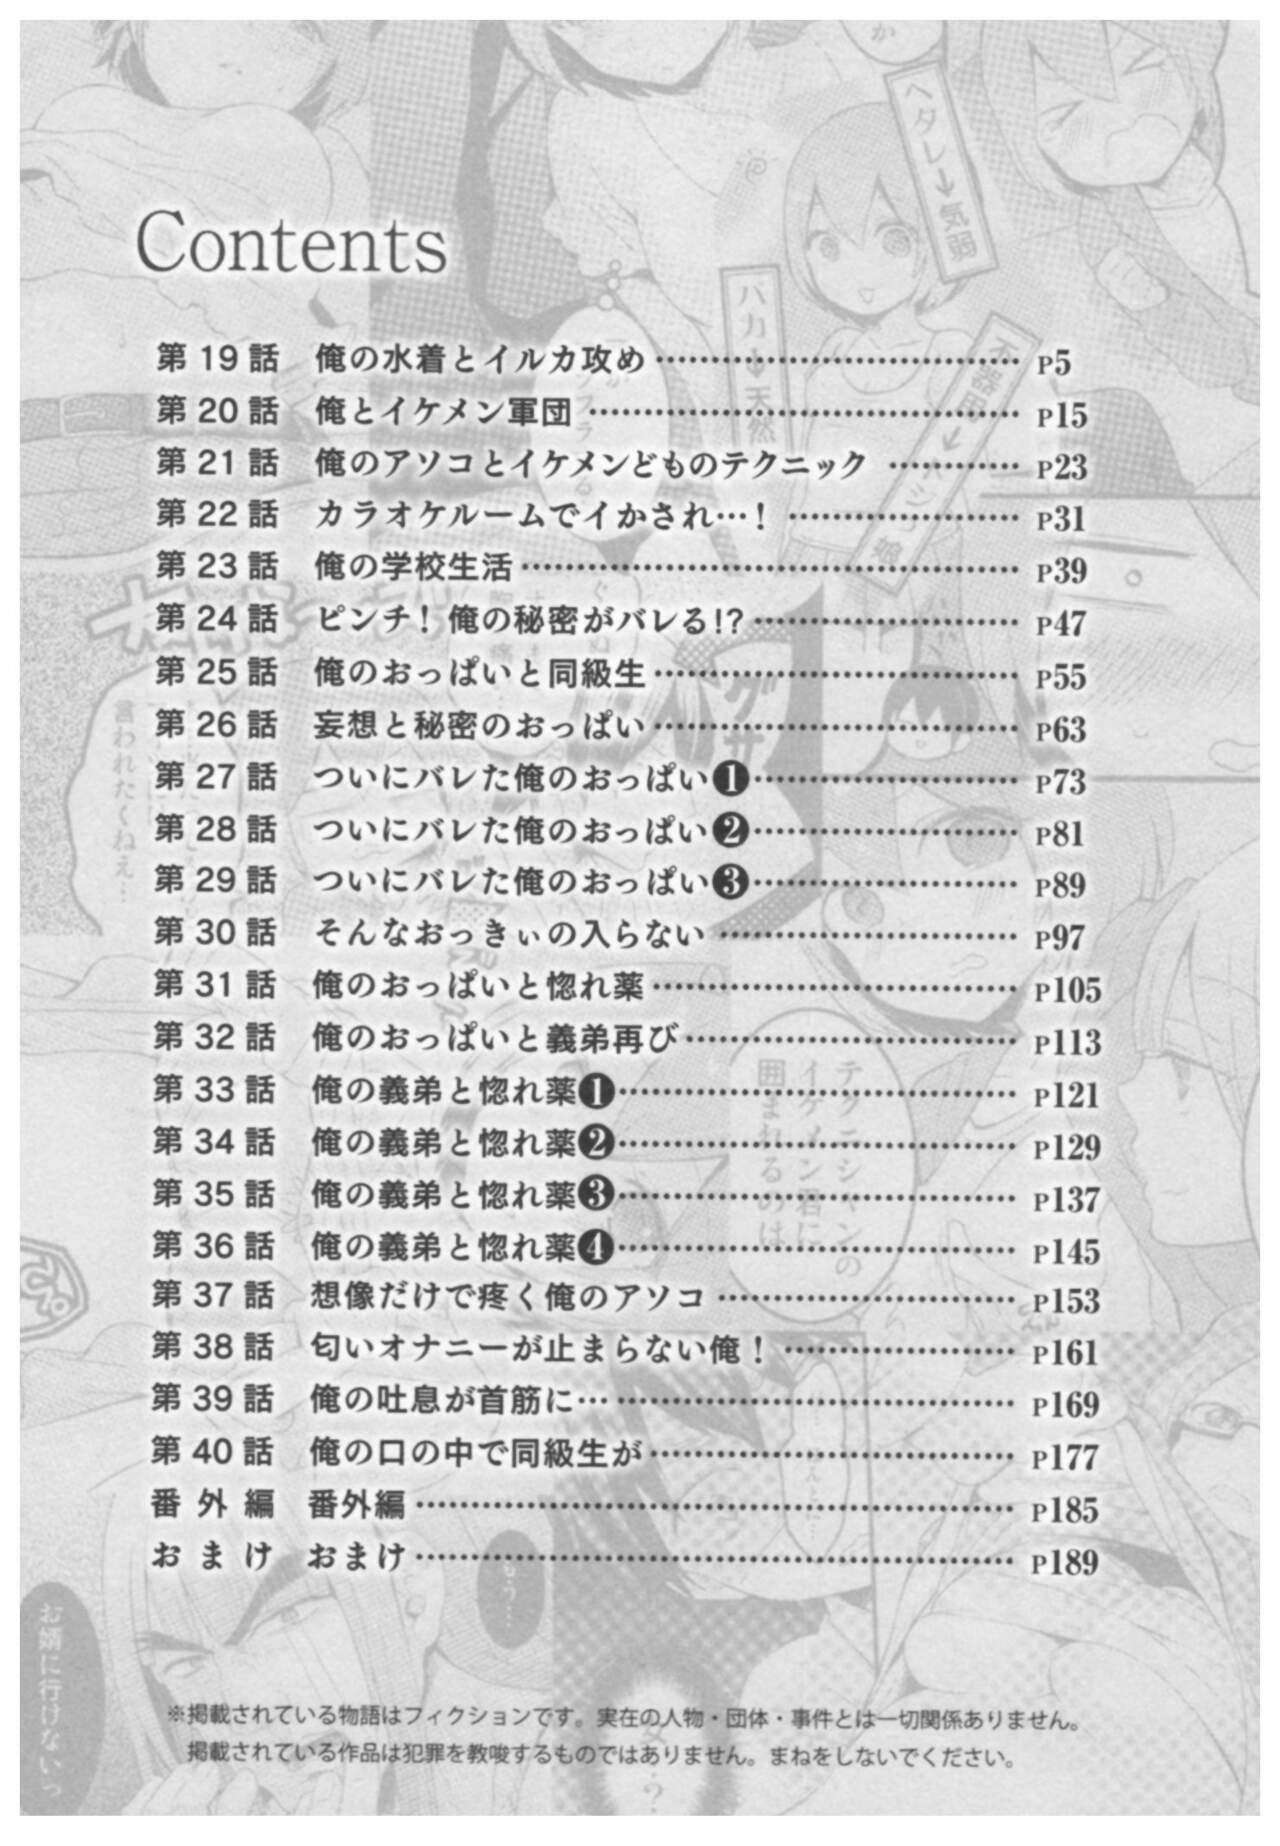 Contents
第19話 俺の水着とイルカ攻め………………………………P5
第20話 俺とイケメン軍団………………………………P15
第21話 俺のアソコとイケメンどものテクニック…………P23
第22話 カラオケルームでイかされ…！……………………P31
第23話 俺の学校生活………………………………P39
第24話 ピンチ！俺の秘密がバレる!?………………………P47
第25話 俺のおっぱいと同級生………………………………P55
第26話 妄想と秘密のおっぱい………………………………P63
第27話 ついにバレた俺のおっぱい❶………………………P73
第28話 ついにバレた俺のおっぱい❷………………………P81
第29話 ついにバレた俺のおっぱい❸………………………P89
第30話 そんなおっきぃの入らない…………………………P97
第31話 俺のおっぱいと惚れ薬………………………………P105
第32話 俺のおっぱいと義弟再び……………………………P113
第33話 俺の義弟と惚れ薬❶………………………………P121
第34話 俺の義弟と惚れ薬❷………………………………P129
第35話 俺の義弟と惚れ薬❸………………………………P137
第36話 俺の義弟と惚れ薬❹………………………………P145
第37話 想像だけで疼く俺のアソコ…………………………P153
第38話 匂いオナニーが止まらない俺！……………………P161
第39話 俺の吐息が首筋に…………………………………P169
第40話 俺の口の中で同級生が………………………………P177
番外編 番外編………………………………P185
おまけ おまけ………………………………P189
※掲載されている物語はフィクションです。実在の人物・団体・事件とは一切関係ありません。
掲載されている作品は犯罪を教唆するものではありません。まねをしないでください。
ヘタレ→気弱
バカ→天然
言われたくねえ…
グサ
テクニシャンの
イケメン君に
囲まれるのは
お婿に行けないっ